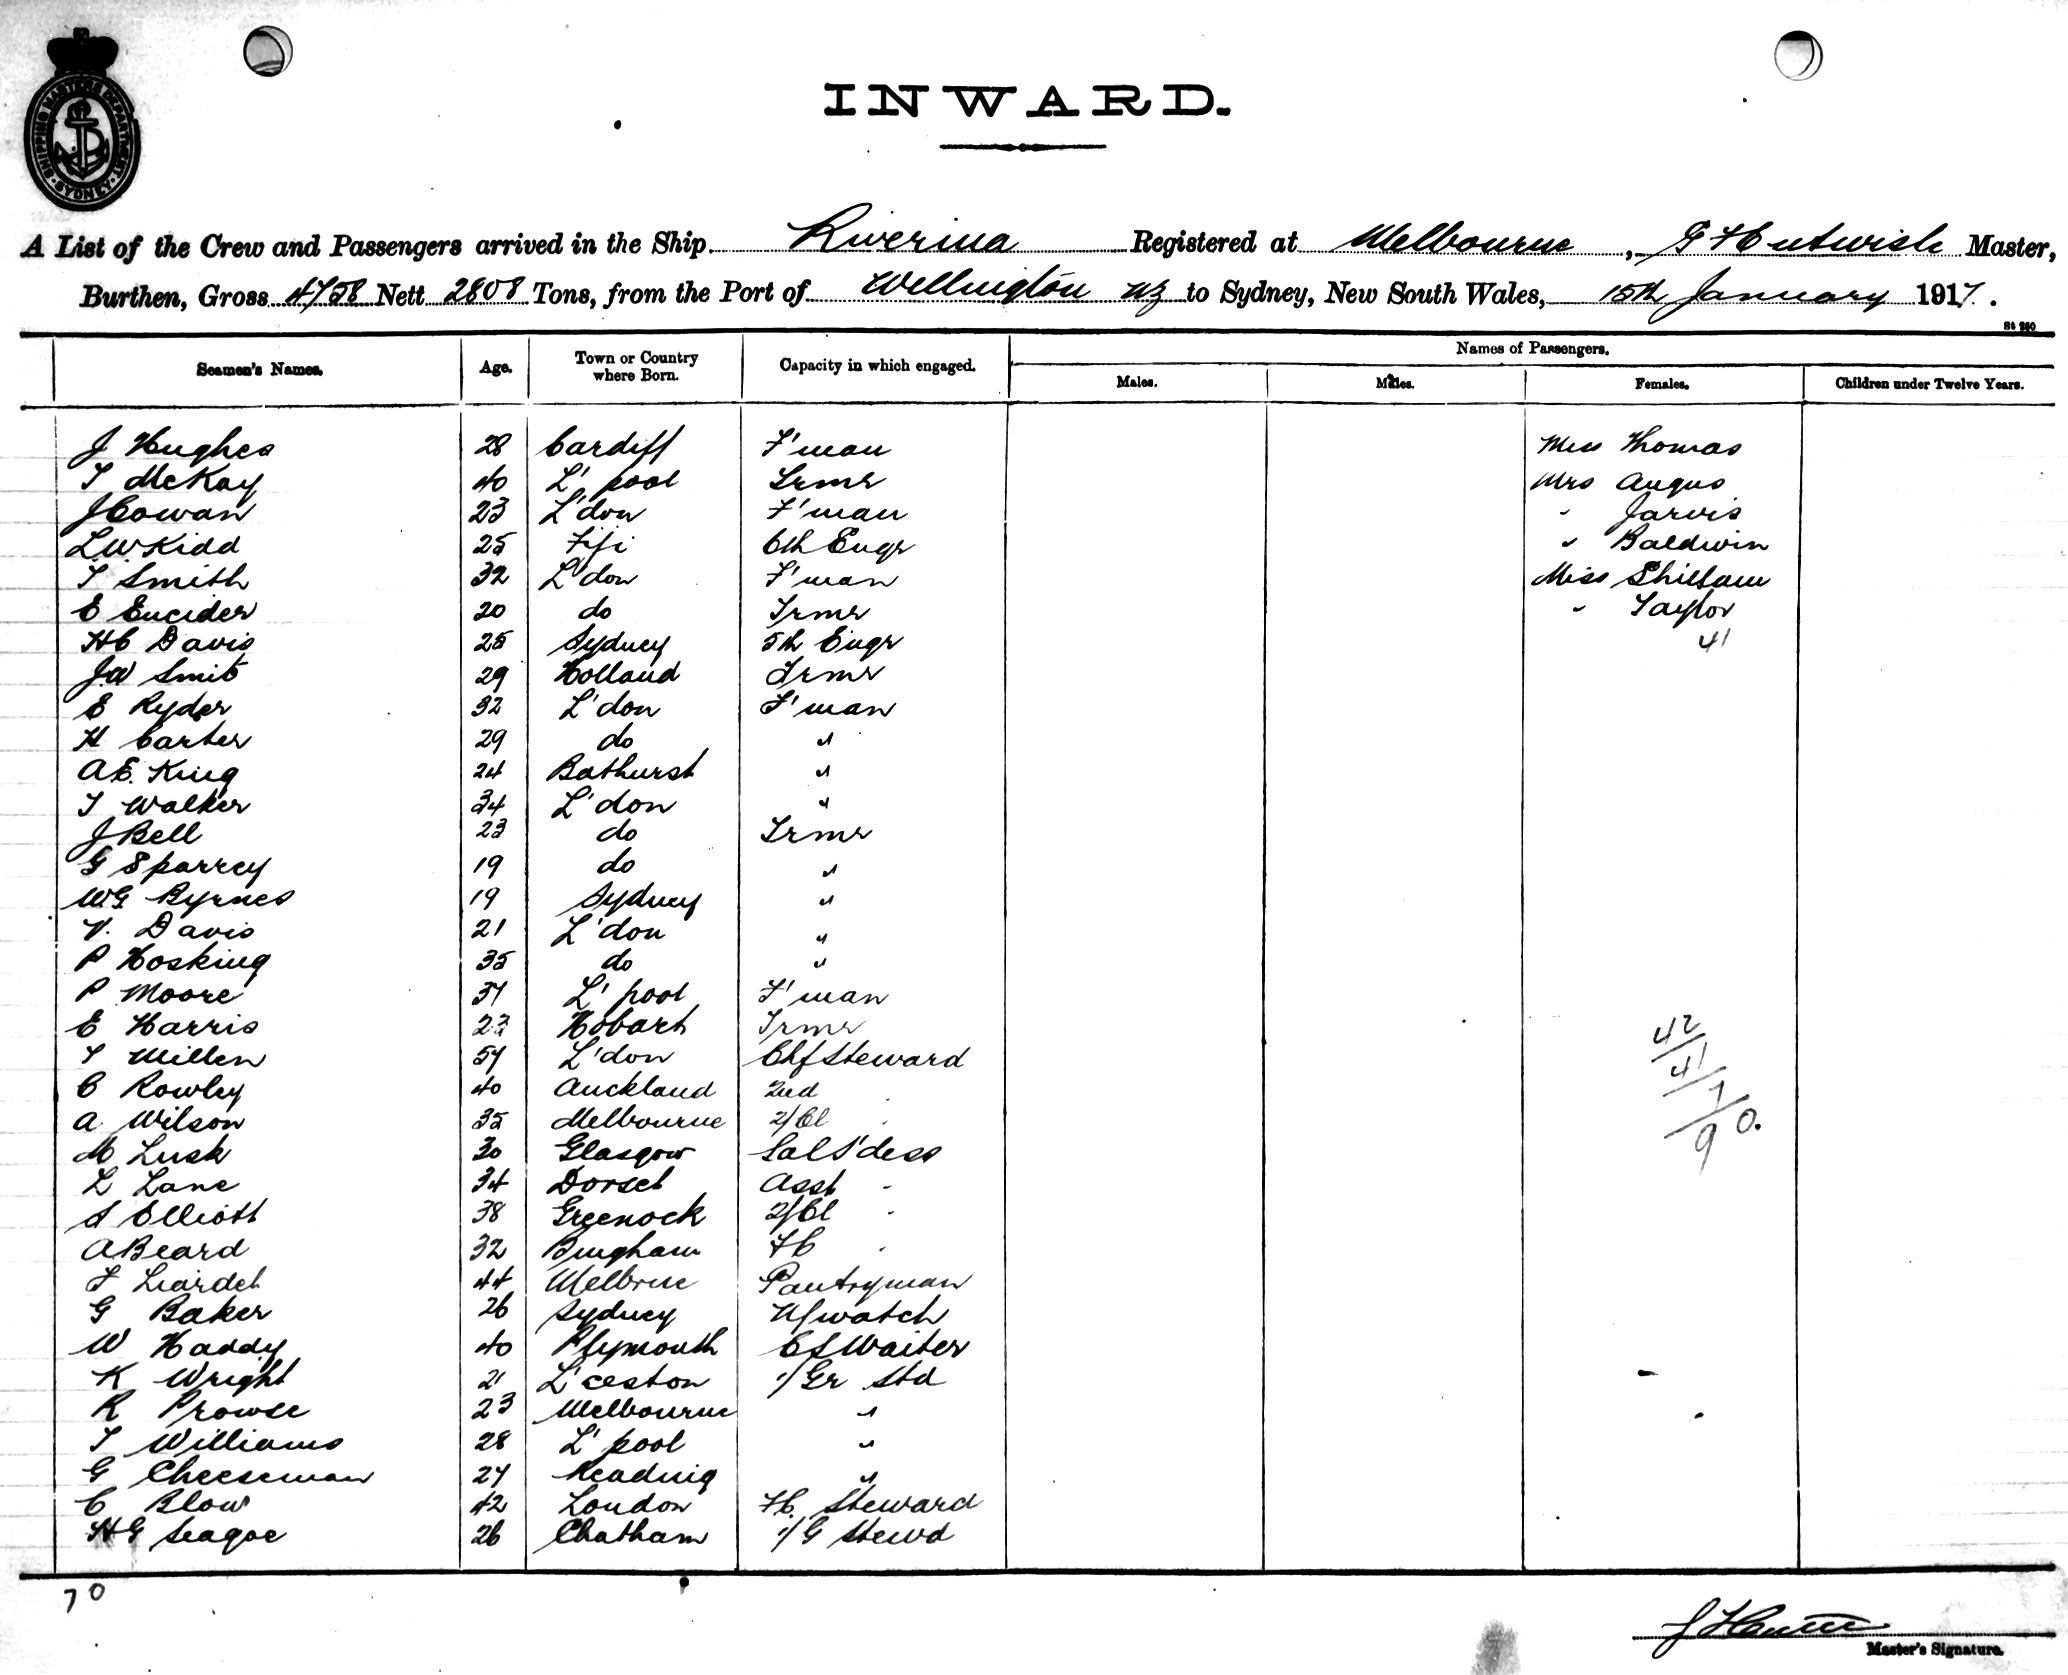 SHIPPING MASTERS DEPARTMENT SYDNEY
INWARD.
A List of the Crew and Passengers arrived in the Ship Riverina Registered at Melbourne, Master,
Burthen, Gross 4758 Nett 2808 Tons, from the Port of Wellington NZ to Sydney, New South Wales, 15th January 1917.
Seamen's Names. Age. Town or Country where Born. Capacity in which engaged. Names of Passengers.
Males. Males. Females. Children under Twelve Years.
J Hughes 28 Cardiff F'man Miss Thomas
T McKay 40 L'pool Trmr Mrs Angus
J Cowan 23 L'don F'man " Jarvis
L W Kidd 25 Fiji 6th Engr " Baldwin
T Smith 32 L'don F'man Miss
E 20 do Trmr " Taylor
H C Davis 25 Sydney 5th Engr 41
J W Smit 29 Holland Trmr
E Ryder 32 L'don F'man
H Carter 29 do "
A E. King 24 Bathurst "
T Walker 34 L'don "
J Bell 23 do Trmr
G Sparrey 19 do "
W G Byrnes 19 Sydney "
V. Davis 21 L'don "
P Hosking 35 do "
P Moore 37 L'pool F'man
E Harris 23 Hobart Trmr
T Millen 57 L'don Chf Steward
C Rowley 40 Auckland 2nd "
A Wilson 35 Melbourne 2/Cl "
M Lusk 30 Glasgow Sal S'dess
L Lane 34 Dorset Asst "
S Elliott 38 Greenock 2/Cl "
A Beard 32 Bingham FC "
F Liardet 44 Melbrne Pantryman
G Baker 26 Sydney N/watch
W Haddy 40 Plymouth Cf Waiter
K Wright 21 L'ceston 1/Gr Std
R Prowse 23 Melbourne "
T Williams 28 L'pool "
G Cheeseman 27 Reading "
C Blow 42 London FC. Steward
H G Seagoe 26 Chatham 1/G Stewd
42/41/1/0.
9
70
Master's Signature.